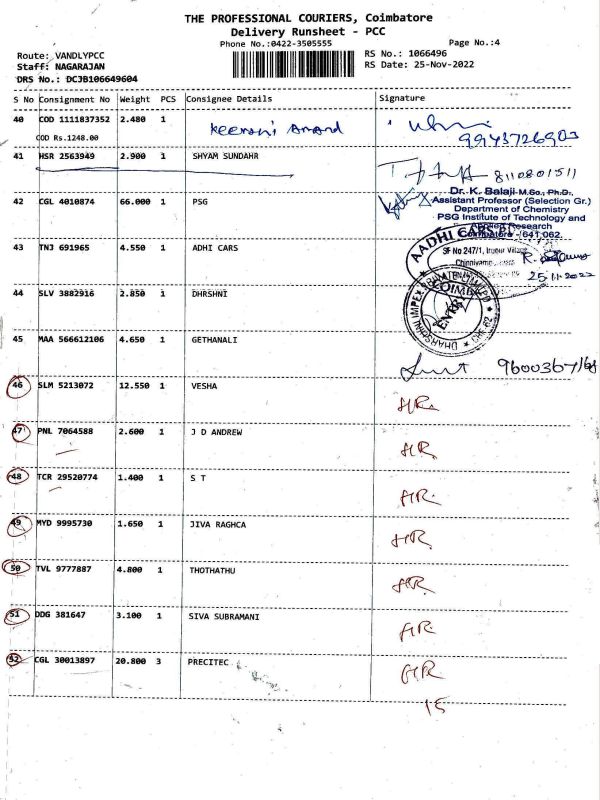 THE PROFESSIONAL COURIERS, Coimbatore
Delivery Runsheet - PCC
Phone No.:0422-3505555
Page No.:4
Route: VANDLYPCC
RS No.: 1066496
Staff: NAGARAJAN
RS Date: 25-Nov-2022
DRS No.: DCJB106649604
S No Consignment No Weight PCS Consignee Details Signature
40 COD 1111837352 2.480 1 Keerani Anand
COD Rs.1248.00
9943726903
41 HSR 2563949 2.900 1 SHYAM SUNDAHR
8110801511
42 CGL 4010874 66.000 1 PSG
Dr. K. Balaji M.Sc., Ph.D.,
Assistant Professor (Selection Gr.)
Department of Chemistry
PSG Institute of Technology and
Applied Research
Coimbatore - 641 062.
43 TNJ 691965 4.550 1 ADHI CARS
AADHI CARS
SF No 247/1, Irugur Village
25.11.2022
44 SLV 3882916 2.850 1 DHRSHNI
DHARSHNI IMPEX PRIVATE LIMITED
ENTRY
45 MAA 566612106 4.650 1 GETHANALI
46 SLM 5213072 12.550 1 VESHA HR
47 PNL 7064588 2.600 1 J D ANDREW HR
48 TCR 29520774 1.400 1 S T HR
49 MYD 9995730 1.650 1 JIVA RAGHCA HR
50 TVL 9777887 4.800 1 THOTHATHU HR
51 DDG 381647 3.100 1 SIVA SUBRAMANI HR
52 CGL 30013897 20.800 3 PRECITEC HR
15